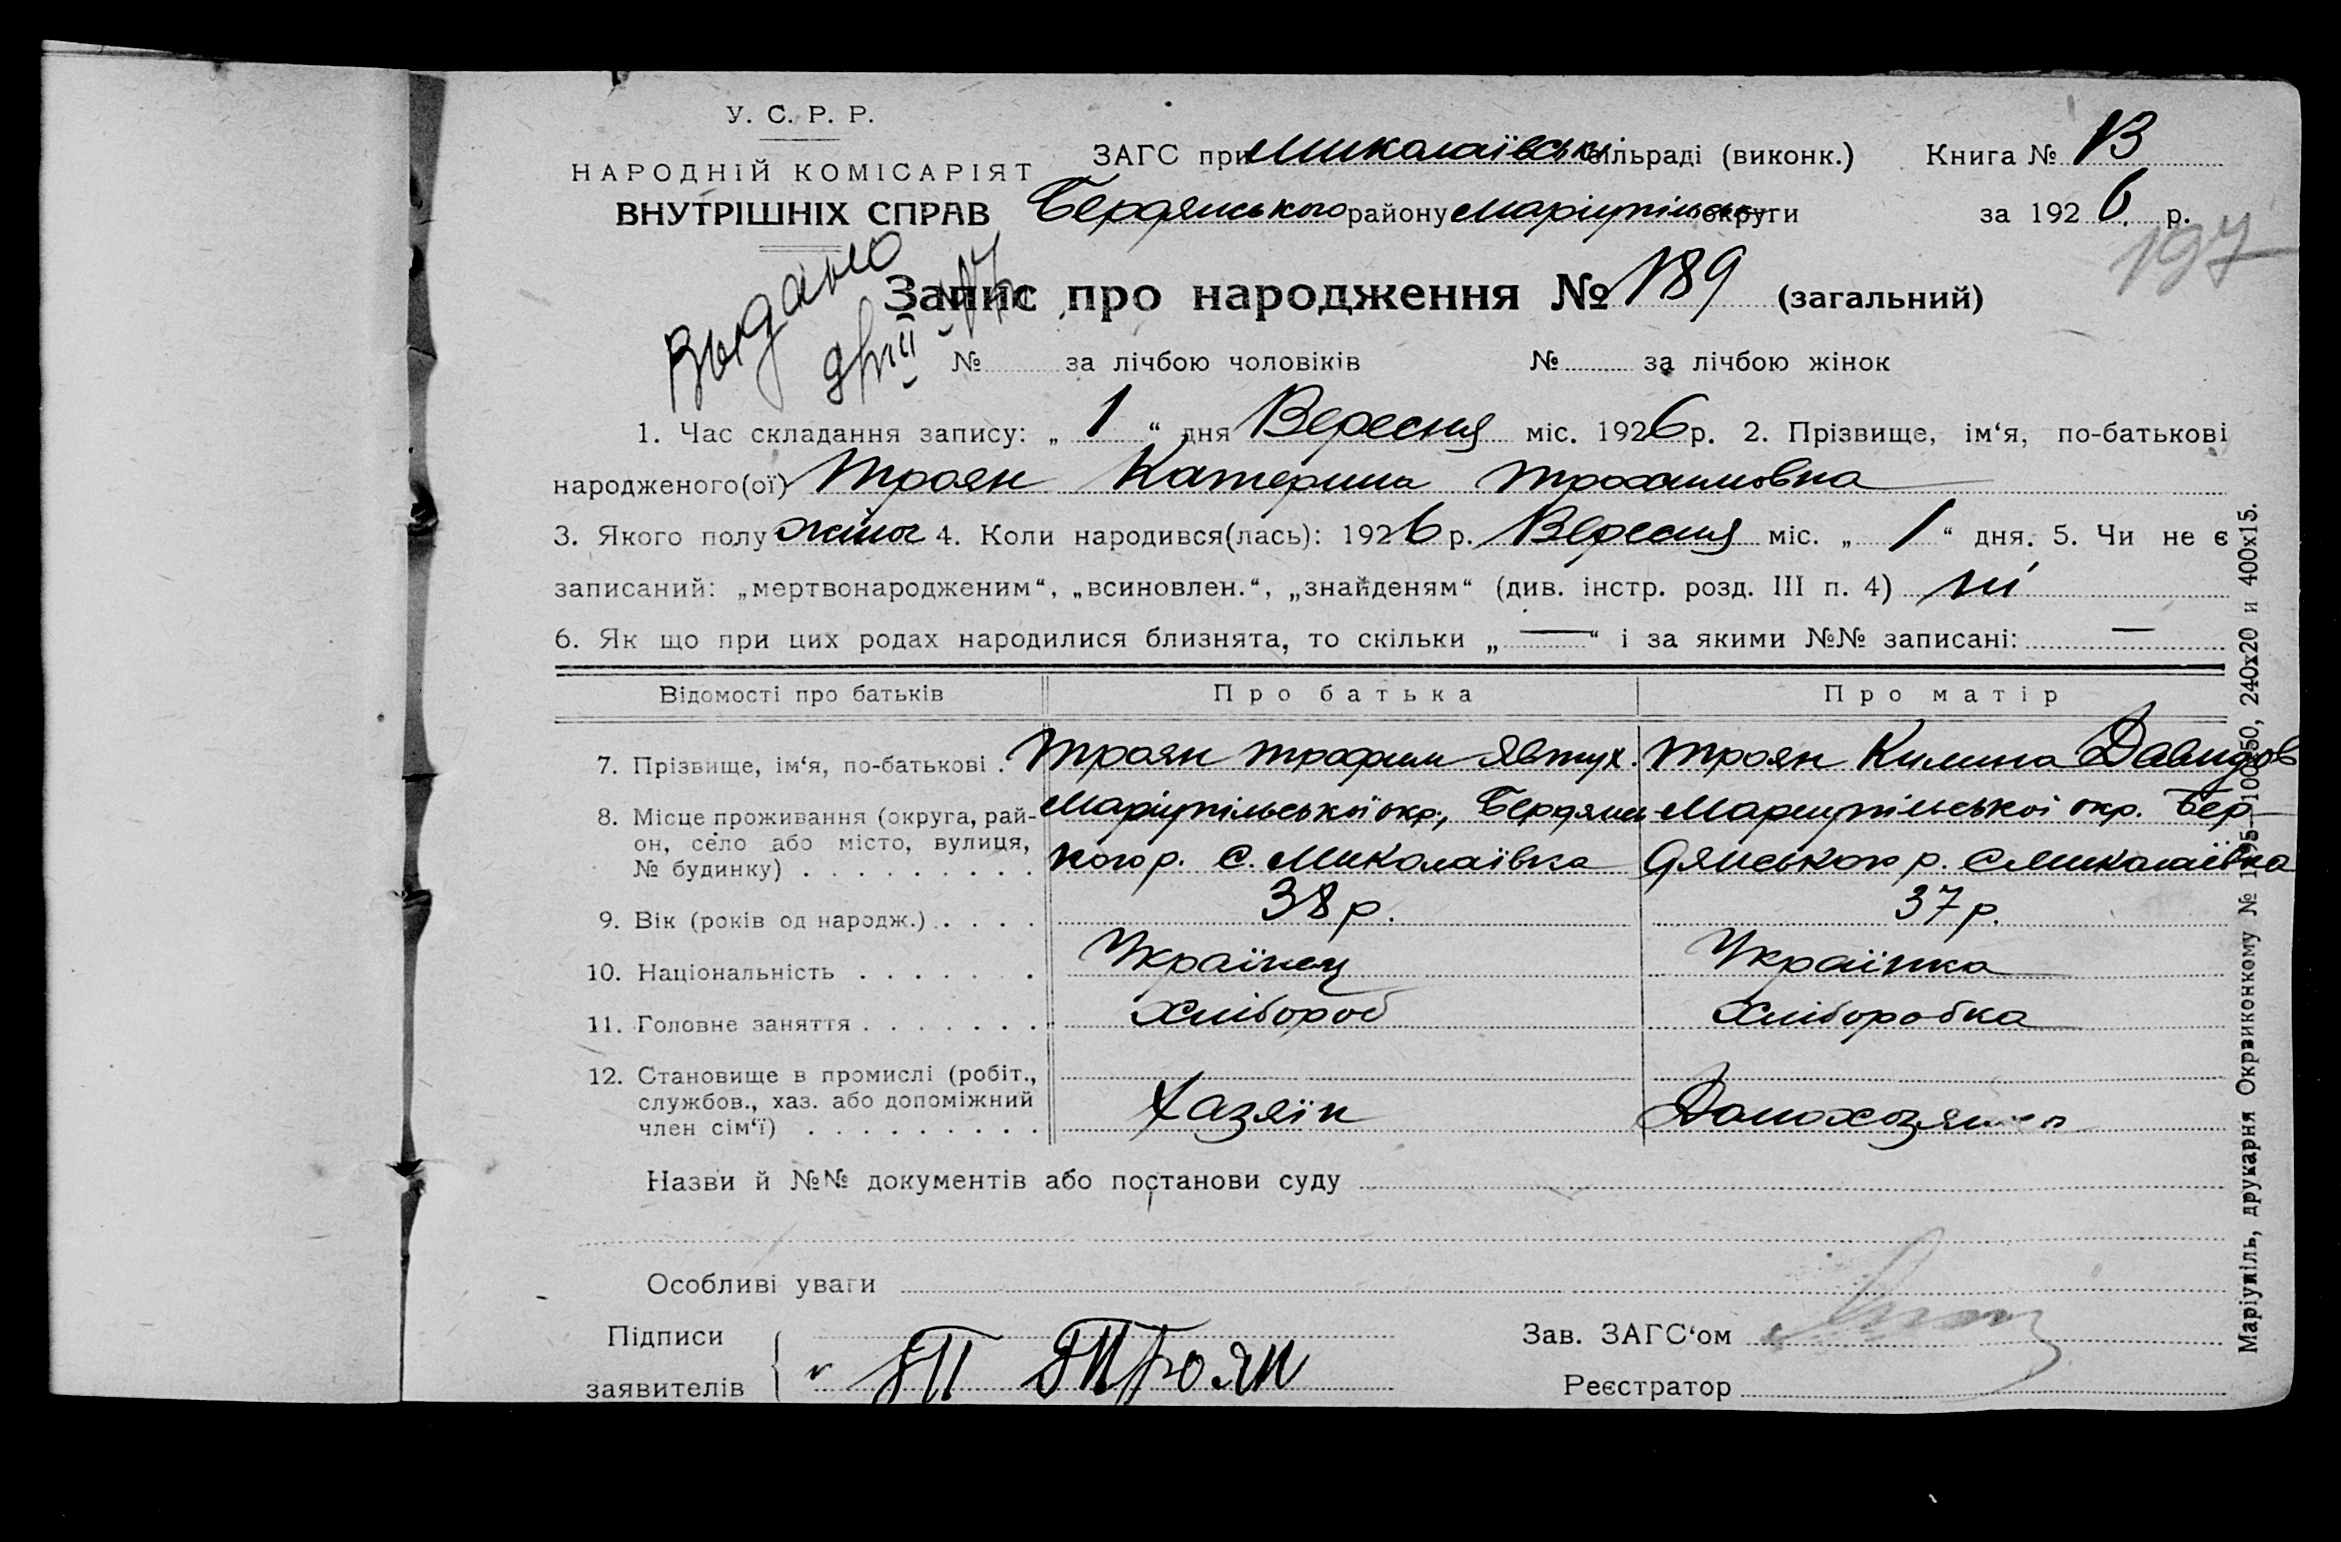 У. С. Р. Р.
НАРОДНІЙ КОМІСАРІЯТ
ВНУТРІШНІХ СПРАВ
ЗАГС при Миколаївськ сільраді (виконк.) Книга №
Бердянського району Маріупільськ округи за 1926 р.
197
Выдано
Запис про народження № 189 (загальний)
№ за лічбою чоловіків № за лічбою жінок
1. Час складання запису: „ 1 “ дня Вересня міс. 1926 р. 2. Прізвище, ім‘я, по-батькові
народженого(ої) Троян Катерина Трохимовна
3. Якого полу жіноч 4. Коли народився(лась): 1926 р. Вересня міс. „ 1 “ дня. 5. Чи не є
записаний: „мертвонародженим“, „всиновлен.“, „знайденям“ (див. інстр. розд. III п. 4) ні
6. Як що при цих родах народилися близнята, то скільки „ — “ і за якими №№ записані: —
Відомості про батьків Про батька Про матір
7. Прізвище, ім‘я, по-батькові . Троян Трофим Явтух. Троян Килина Давидов
8. Місце проживання (округа, рай- Маріупільської окр., Бердянсь Мариупільської окр. Бер-
он, село або місто, вулиця,
№ будинку) . . . . . . . . . кого р. с. Миколаївка дянського р. с Миколаївка
9. Вік (років од народж.) . . . . 38 р. 37 р.
10. Національність . . . . . . . Українец Українка
11. Головне заняття . . . . . . . Хлібороб Хлiборобка
12. Становище в промислі (робіт.,
службов., хаз. або допоміжний
член сім‘ї) . . . . . . . . . Хазяїн
Назви й №№ документів або постанови суду
Особливі уваги
Підписи
заявителів Троян
Зав. ЗАГС‘ом
Реєстратор
Маріупіль, друкарня Окрвиконкому № 1195—100050, 240х20 и 400х15.